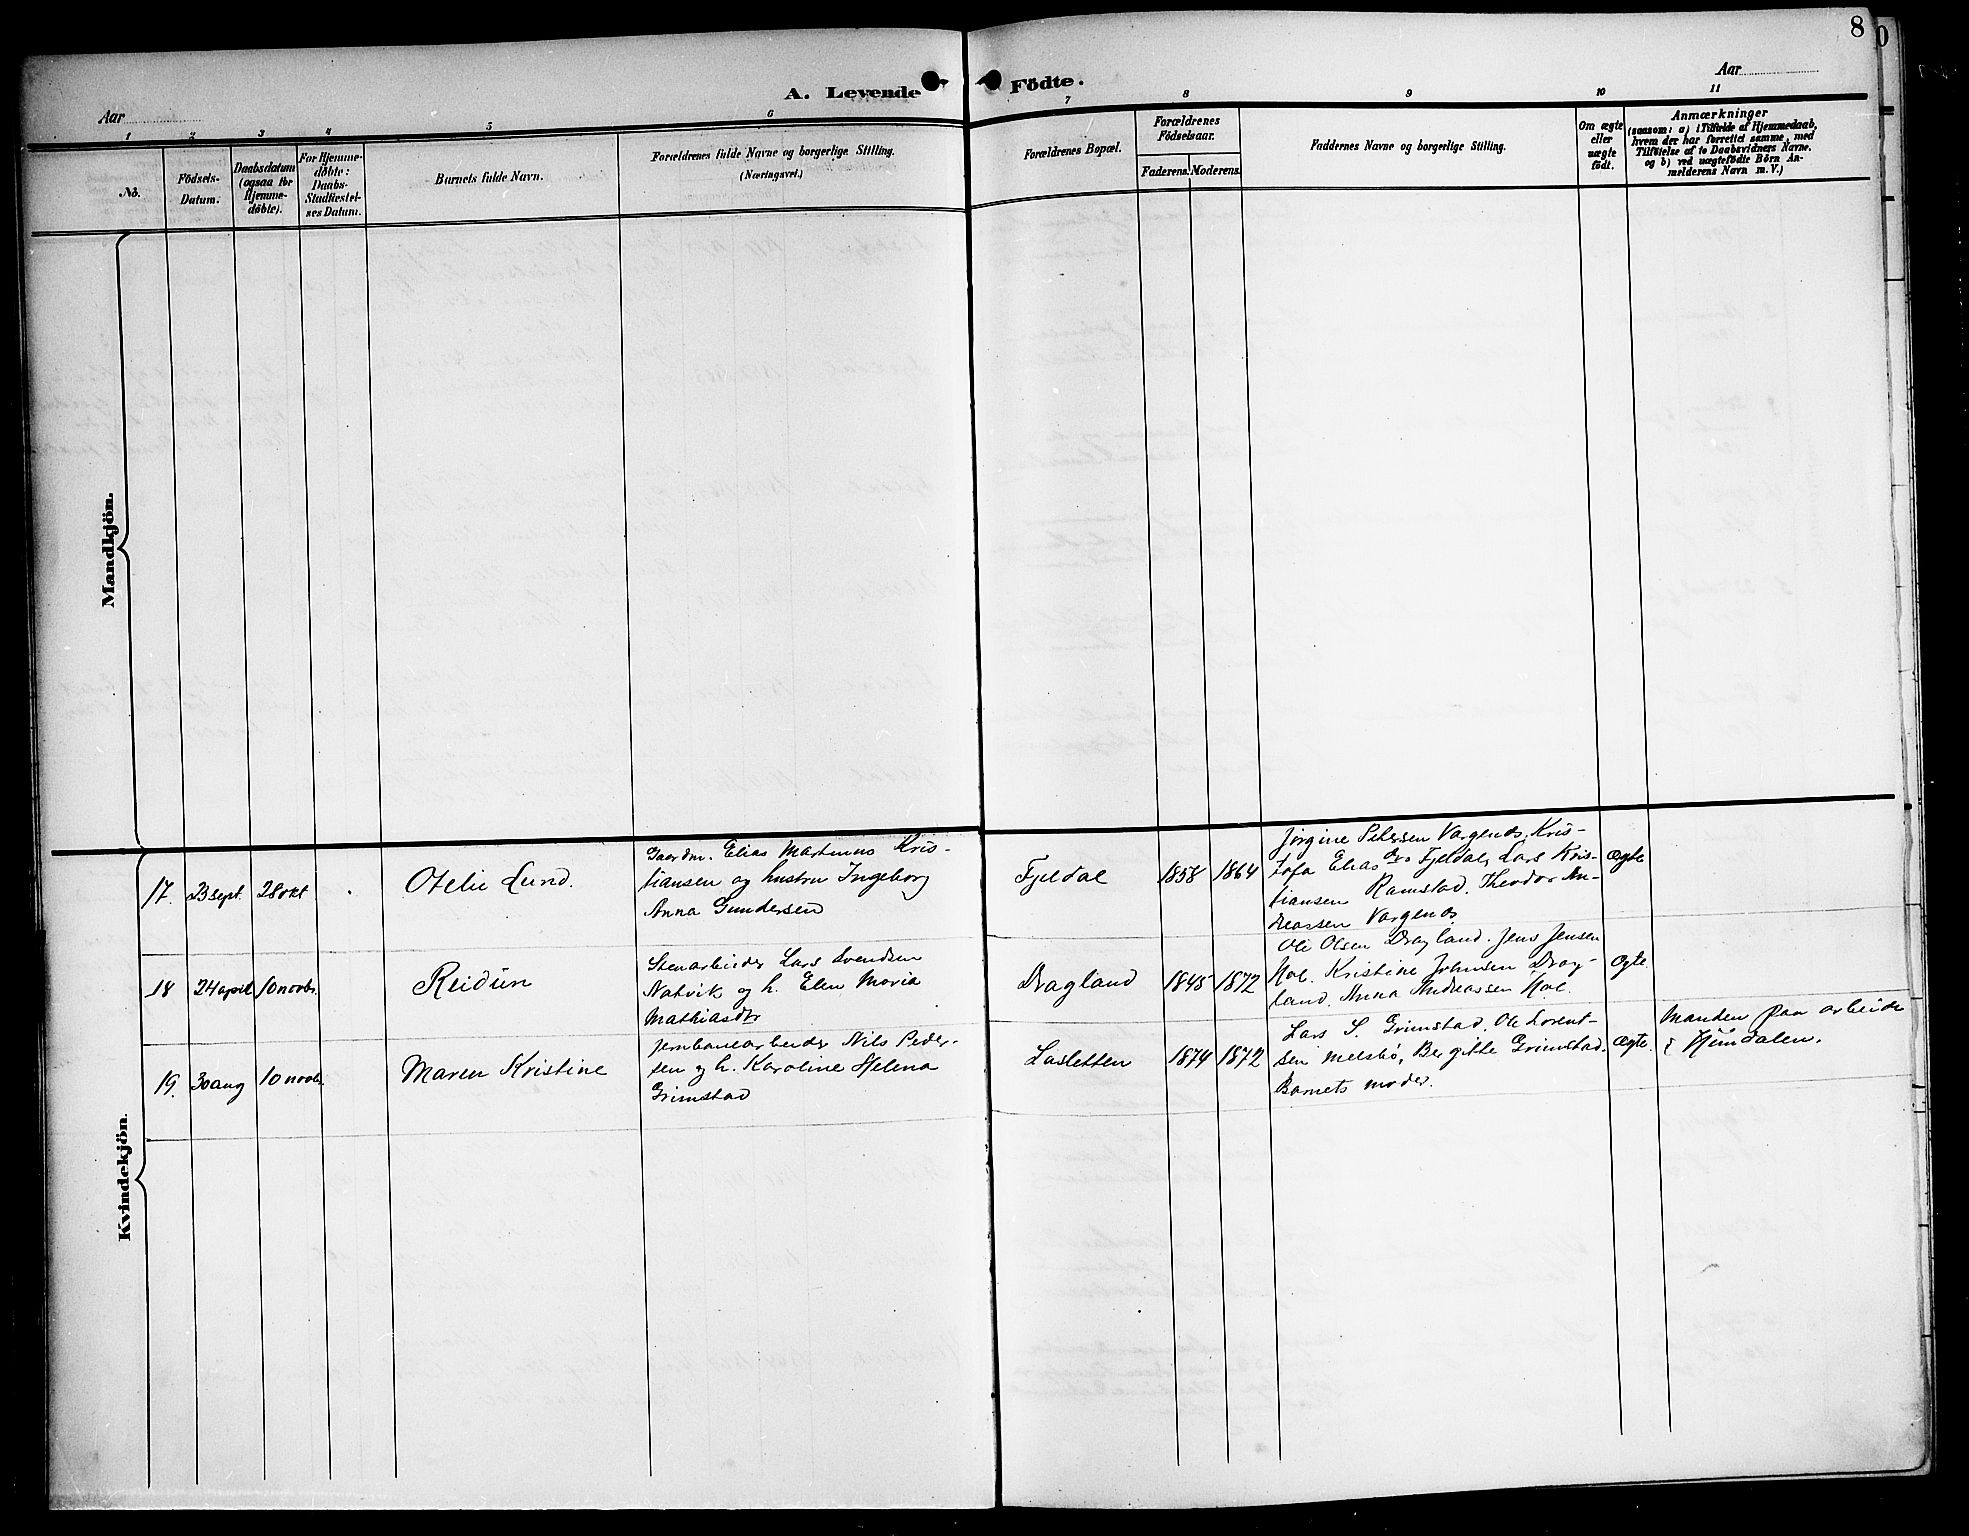 8
A. Levende Födte.
Aar
Aar
1 2 3 4 5 6 7 8 9 10 11
No.
Födsels-
Datum.
Daabsdatum
(ogsaa for
Hjemme-
døbte).
For Hjemme-
døbte:
Daabs-
Stadfæstel-
ses Datum.
Barnets fulde Navn.
Forældrenes fulde Navne og borgerlige Stilling.
(Næringsvei.)
Forældrenes Bopæl.
Forældrenes
Födselsaar.
Faderens. Moderens.
Faddernes Navne og borgerlige Stilling.
Om ægte
eller
uægte
født.
Anmærkninger
(saasom: a) i Tilfælde af Hjemmedaab,
hvem der har forrettet samme, med
Tilføielse af to Daabsvidners Navne,
og b) ved uægtefödte Börn An-
melderens Navn m. V.)
Mandkjön.
Kvindekjön.
17. 23 sept. 28 okt
Otelie Lund.
Gaardm. Elias Martinus Kris-
tiansen og hustru Ingeborg
Anna Gundersen
Fjeldal 1858 1864
Jörgine Petersen Vargenes, Kris-
tofa Elias Fjeldal, Lars Kris-
tiansen Ramstad. Theodor An-
reassen Vargenes
Ægte
18 24 april 10 novbr.
Reidun
Stenarbeider Lars Svendsen
Natvik og h. Elen Maria
Mathiasdtr
Dragland 1845 1872
Ole Olsen Dragland. Jens Jensen
Hol. Kristine Johnsen Drag-
land. Anna Andreassen Hol.
Ægte
19. 30 aug 10 novbr.
Maren Kristine
Jernbanearbeider Nils Peder-
sen og h. Karoline Helena
Grimstad
Lasletten 1874 1872
Lars S. Grimstad, Ole Lorent-
sen Melsbö, Bergitte Grimstad.
Barnets moder.
Ægte.
Manden paa arbeide
i Hundalen.